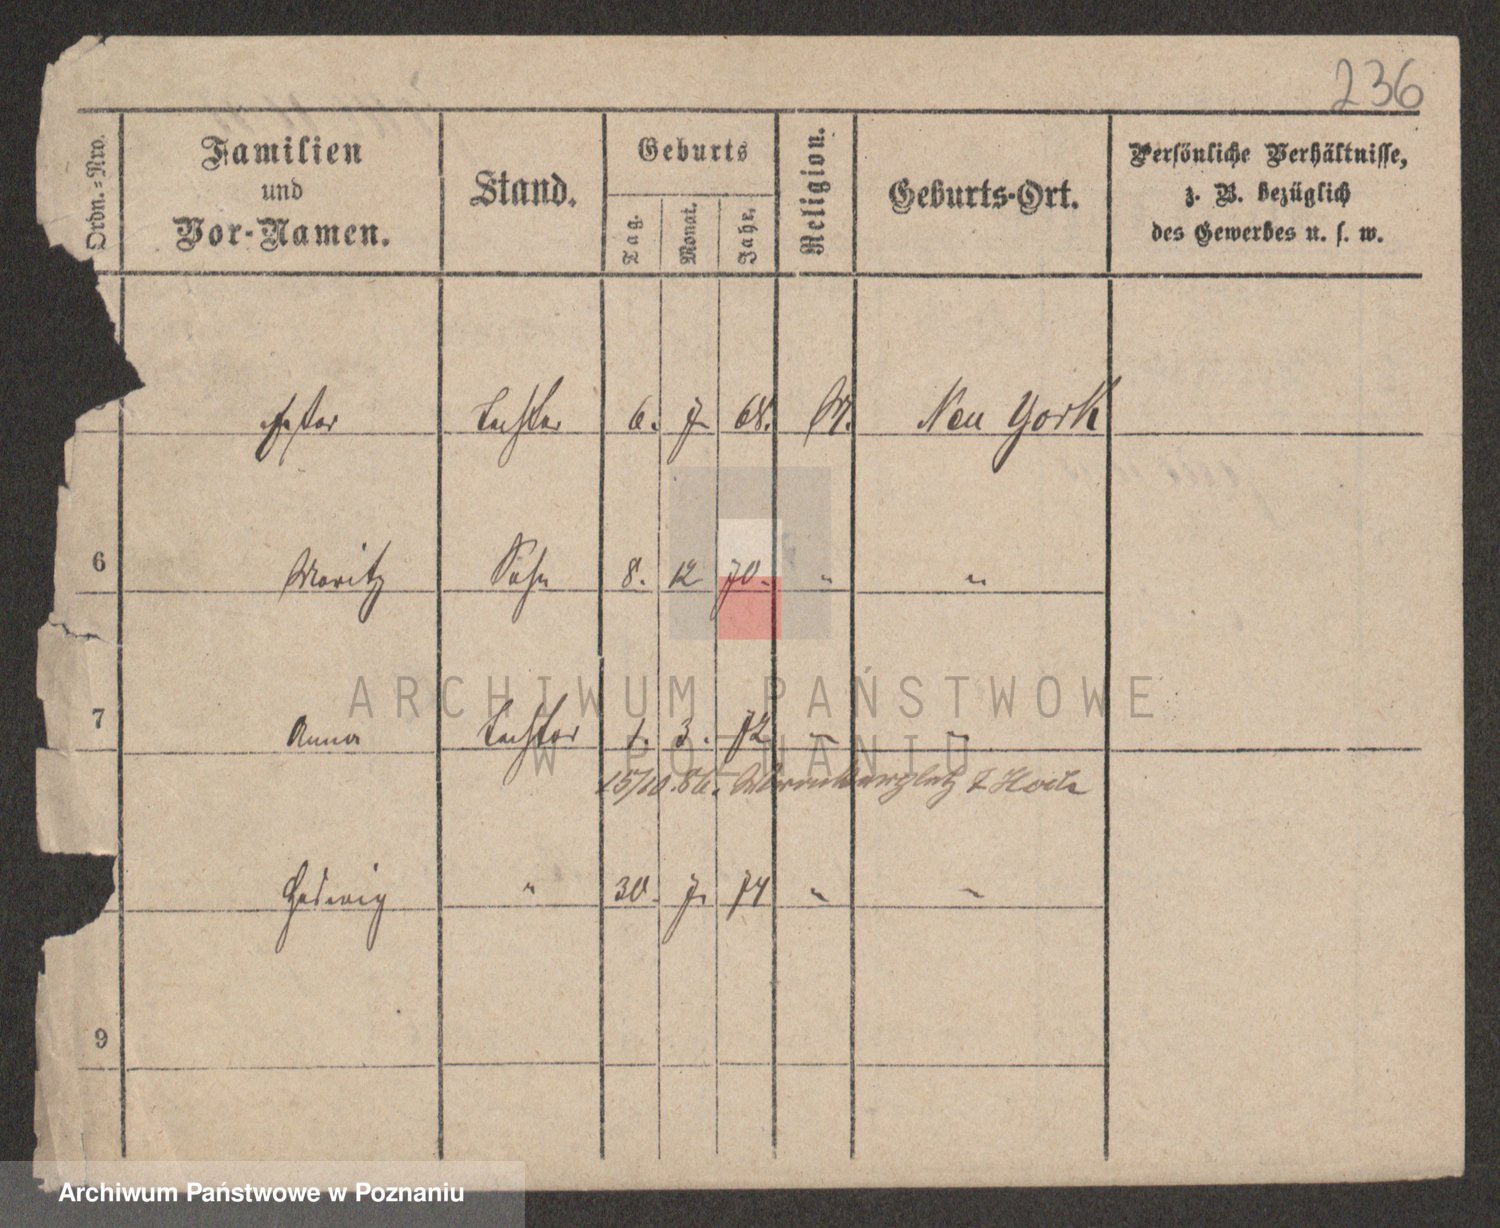 236
Ordn.=Nro.
Familien
und
Vor-Namen.
Stand.
Geburts
Tag.
Monat.
Jahr.
Religion.
Geburts-Ort.
Persönliche Verhältnisse,
z. B. bezüglich
des Gewerbes u. s. w.
Tochter 6. 7 68. M. New York
6 Moritz Sohn 8. 12 70. " "
7 Anna Tochter 1. 3. 72 " "
15/10.86.
Hedwig " 30. 7. 74 " "
9
ARCHIWUM PAŃSTWOWE
W POZNANIU
Archiwum Państwowe w Poznaniu